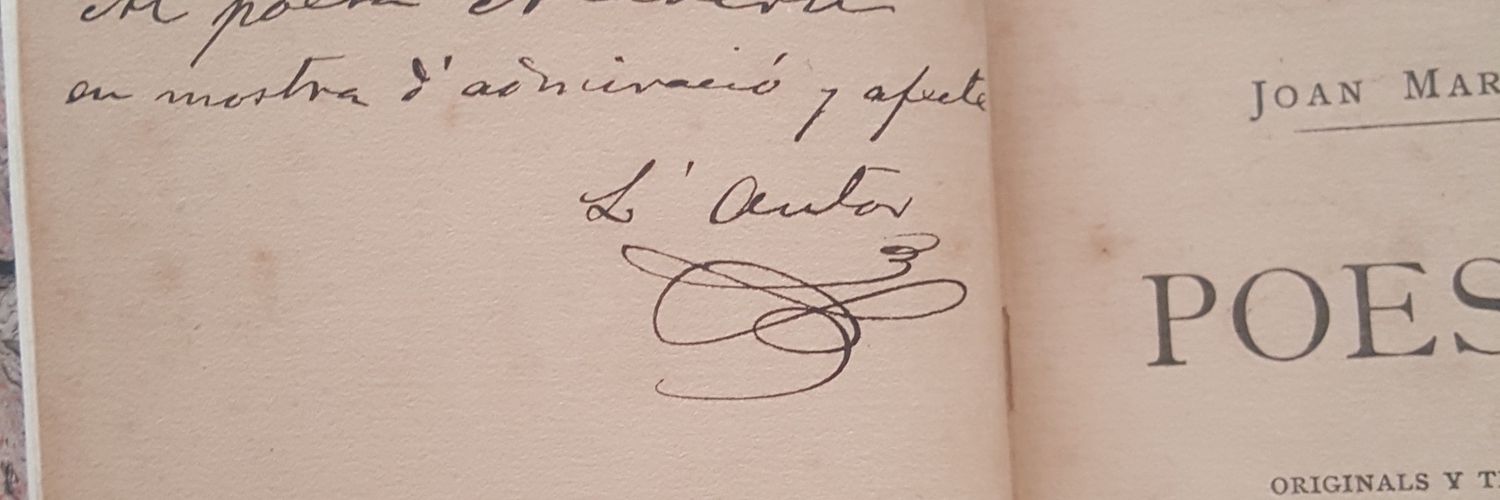 Al poeta
en mostra d'admiració y afecte
L'autor
JOAN MAR
POES
ORIGINALS Y T